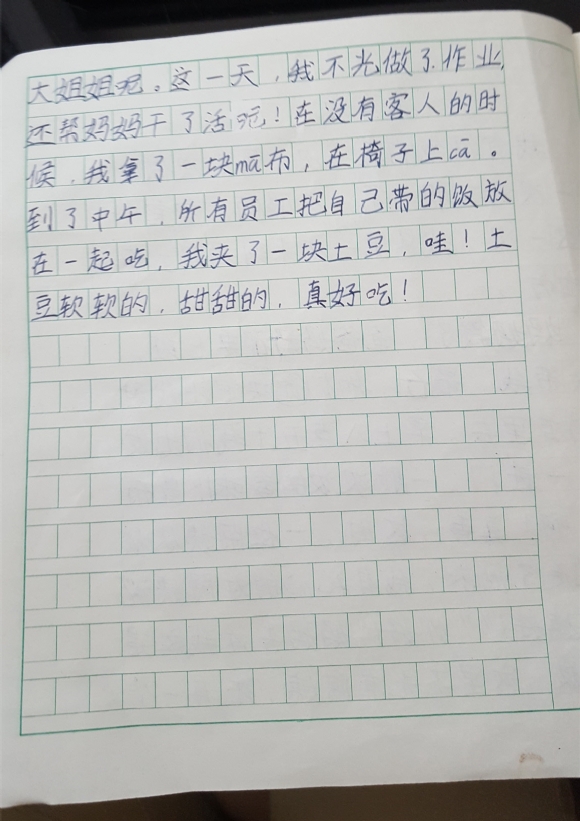 大姐姐呢。这一天，我不光做了作业，
还帮妈妈干了活呢！在没有客人的时
候，我拿了一块mā布，在椅子上cā。
到了中午，所有员工把自己带的饭放
在一起吃，我夹了一块土豆，哇！土
豆软软的，甜甜的，真好吃！